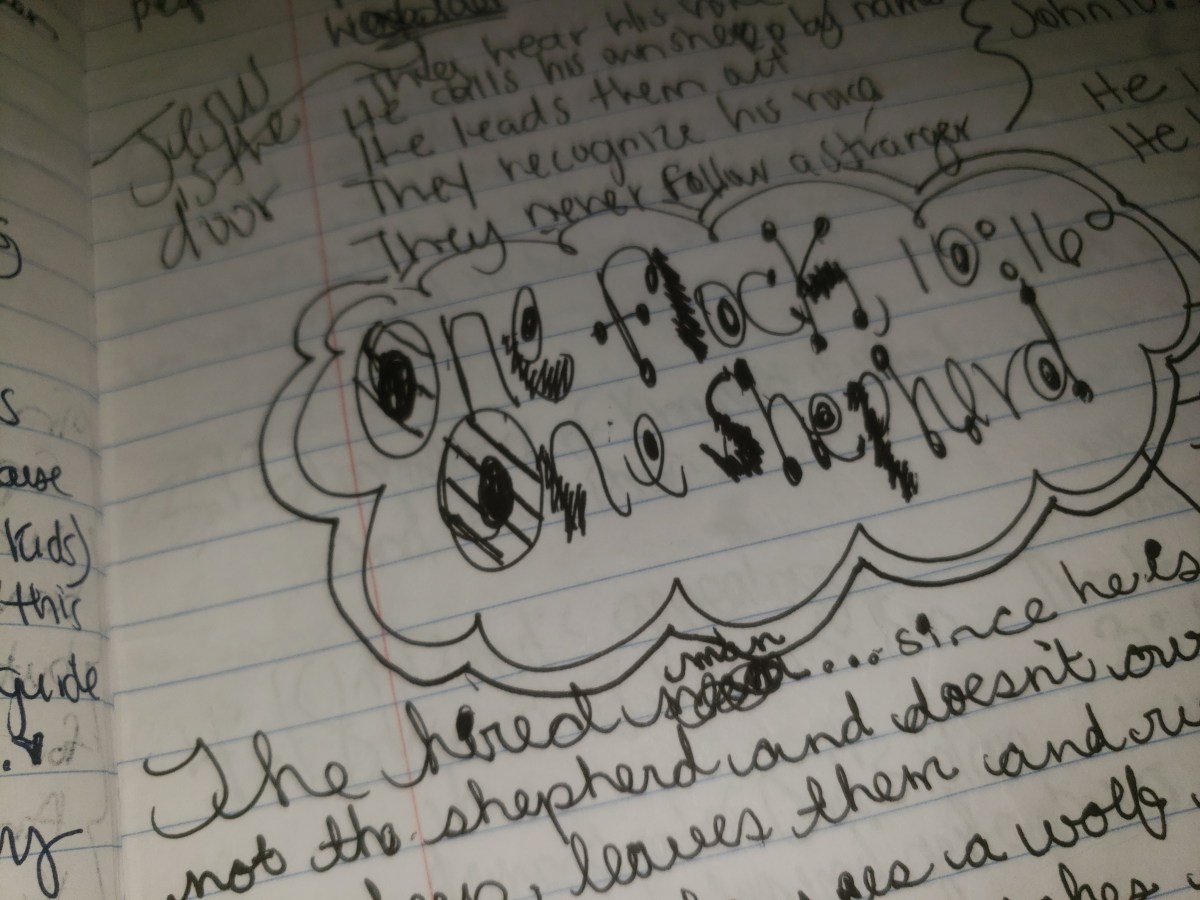 They hear his voice
He calls his own sheep by name
He leads them out
They recognize his voice
They never follow a stranger
John 10:
He
He
Jesus
is the
door
One flock, 10:16
One Shepherd
The hired man ... since he is
not the shepherd and doesn't ow
leaves them and ru
a wolf
s
ause
kids)
this
guide
y